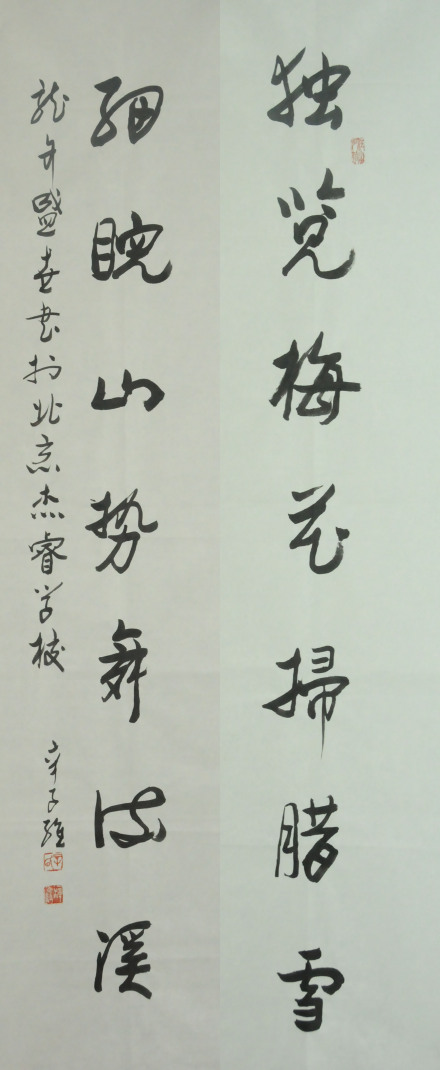 独览梅花掃腊雪
细睨山势舞流溪
龙年盛春书於北京杰睿学校
辛子维